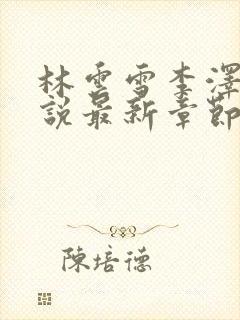 林雲雪李澤
說最新章節
陳培德